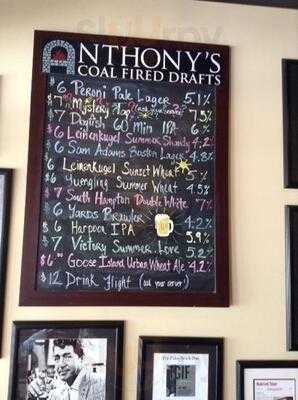 ANTHONY'S
COAL FIRED DRAFTS
$6 Peroni Pale Lager 5.1%
$7 "Mystery Tap" 7.5%
$7 Dogfish 60 Min IPA 6%
$6 Leinenkugel Summer Shandy 4.2%
$6 Sam Adams Boston Lager 4.8%
$6 Leinenkugel Sunset Wheat 5%
$6 Yuengling Summer Wheat 4.5%
$7 South Hampton Double White 7%
$6 Yards Brawler 4.2%
$6 Harpoon IPA 5.9%
$7 Victory Summer Love 5.2%
$6 Goose Island Urban Wheat Ale 4.2%
$12 Drink Flight (ask your server!)
GIF